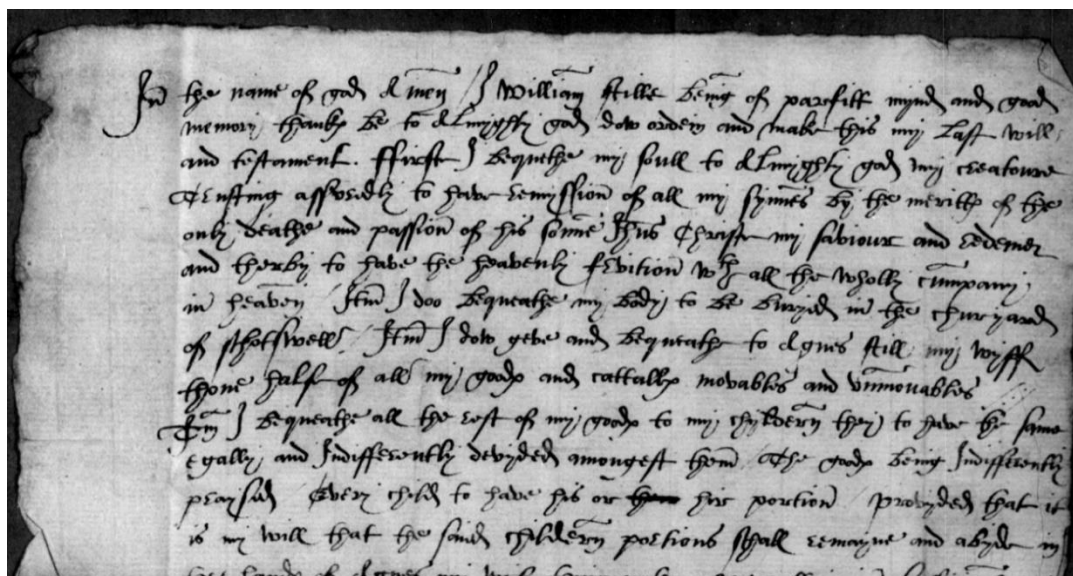 In the name of god Amen I William Stille being of parfitt mynd and good
memory thankes be to Almyghty god dow ordein and make this my Last will
and testament. ffirste I bequethe my soull to Almyghty god my creatoure
Trusting assuredly to have remission of all my synnes by the merites of the
only deathe and passion of his sonne Jhus Christe my saviour and redemer
and therby to have the heavenly fruition wth all the wholly cumpany
in heaven Itm I doo bequeathe my body to be buryed in the churyard
of shotswell Itm I dow geve and bequeath to Agnes Still my wyff
thone halfe of all my goodes and cattalles movables and vnmovables
Itm I bequeathe all the rest of my goodes to my childern they to have the same
egally and Indifferently devyded amongest them The goodes being Indifferently
praysed Every child to have his or hir portion Provyded that it
is my will that the said childern portions shall remayne and abyde in
hands of Agnes my wife